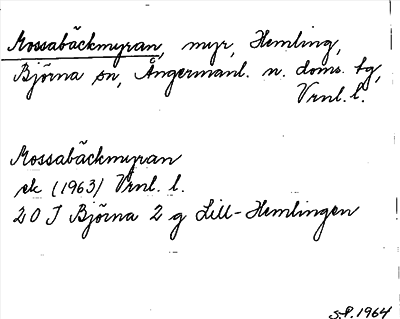 Mossabäckmyran, myr, Hemling,
Björna sn, Ångermanl. n. doms. tg,
Vrnl. l.
Mossabäckmyran
ek (1963) Vrnl. l.
20 J Björna 2 g Lill-Hemlingen
S.P. 1964